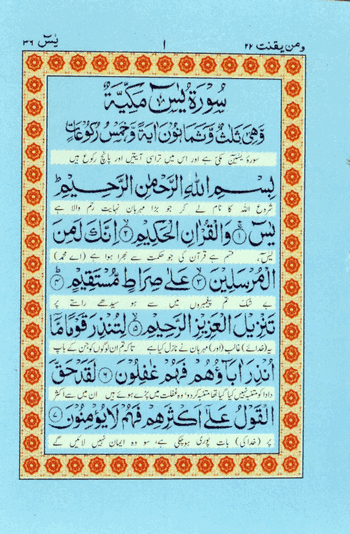 ومن یقنت ۲۲ ا یٰسٓ ۳۶
سُورَةُ يٰسٓ مَكِيَّةٌ
وَهِيَ ثَلٰثٌ وَّثَمَانُوْنَ اٰيَةً وَّخَمْسُ رُكُوْعَاتٍ
سورۂ یٰسین مکی ہے اور اس میں تراسی آیتیں اور پانچ رکوع ہیں
بِسْمِ اللهِ الرَّحْمٰنِ الرَّحِيْمِ
شروع اللہ کا نام لے کر جو بڑا مہربان نہایت رحم والا ہے
يٰسٓ ۱ وَالْقُرْاٰنِ الْحَكِيْمِ ۲ اِنَّكَ لَمِنَ
یٰسٓ، قسم ہے قرآن کی جو حکمت سے بھرا ہوا ہے (اے محمد)
الْمُرْسَلِيْنَ ۳ عَلٰى صِرَاطٍ مُّسْتَقِيْمٍ ۴
بے شک تم پیغمبروں میں سے ہو سیدھے راستے پر
تَنْزِيْلَ الْعَزِيْزِ الرَّحِيْمِ ۵ لِتُنْذِرَ قَوْمًا مَّا
(یہ خدائے) غالب (اور) مہربان نے نازل کیا ہے تاکہ تم ان لوگوں کو جن کے باپ
اُنْذِرَ اٰبَآؤُهُمْ فَهُمْ غٰفِلُوْنَ ۶ لَقَدْ حَقَّ
دادا کو متنبہ نہیں کیا گیا تھا متنبہ کردو وہ غفلت میں پڑے ہوئے ہیں ان میں سے اکثر
الْقَوْلُ عَلٰٓى اَكْثَرِهِمْ فَهُمْ لَا يُؤْمِنُوْنَ ۷
پر (خدا کی) بات پوری ہوچکی ہے، سو وہ ایمان نہیں لائیں گے